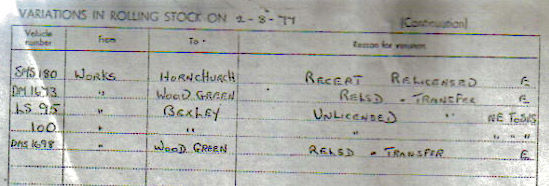 VARIATIONS IN ROLLING STOCK ON 2-8-77 (Continuation)
Vehicle number From To Reason for variation
SMS 180 WORKS HORNCHURCH RECERT RELICENSED E
DM 1673 " WOOD GREEN RELSD " TRANSFER E
LS 95 " BEXLEY UNLICENSED " NE TOSAS
100 " " " " "
DMS 1698 " WOOD GREEN RELSD " TRANSFER E